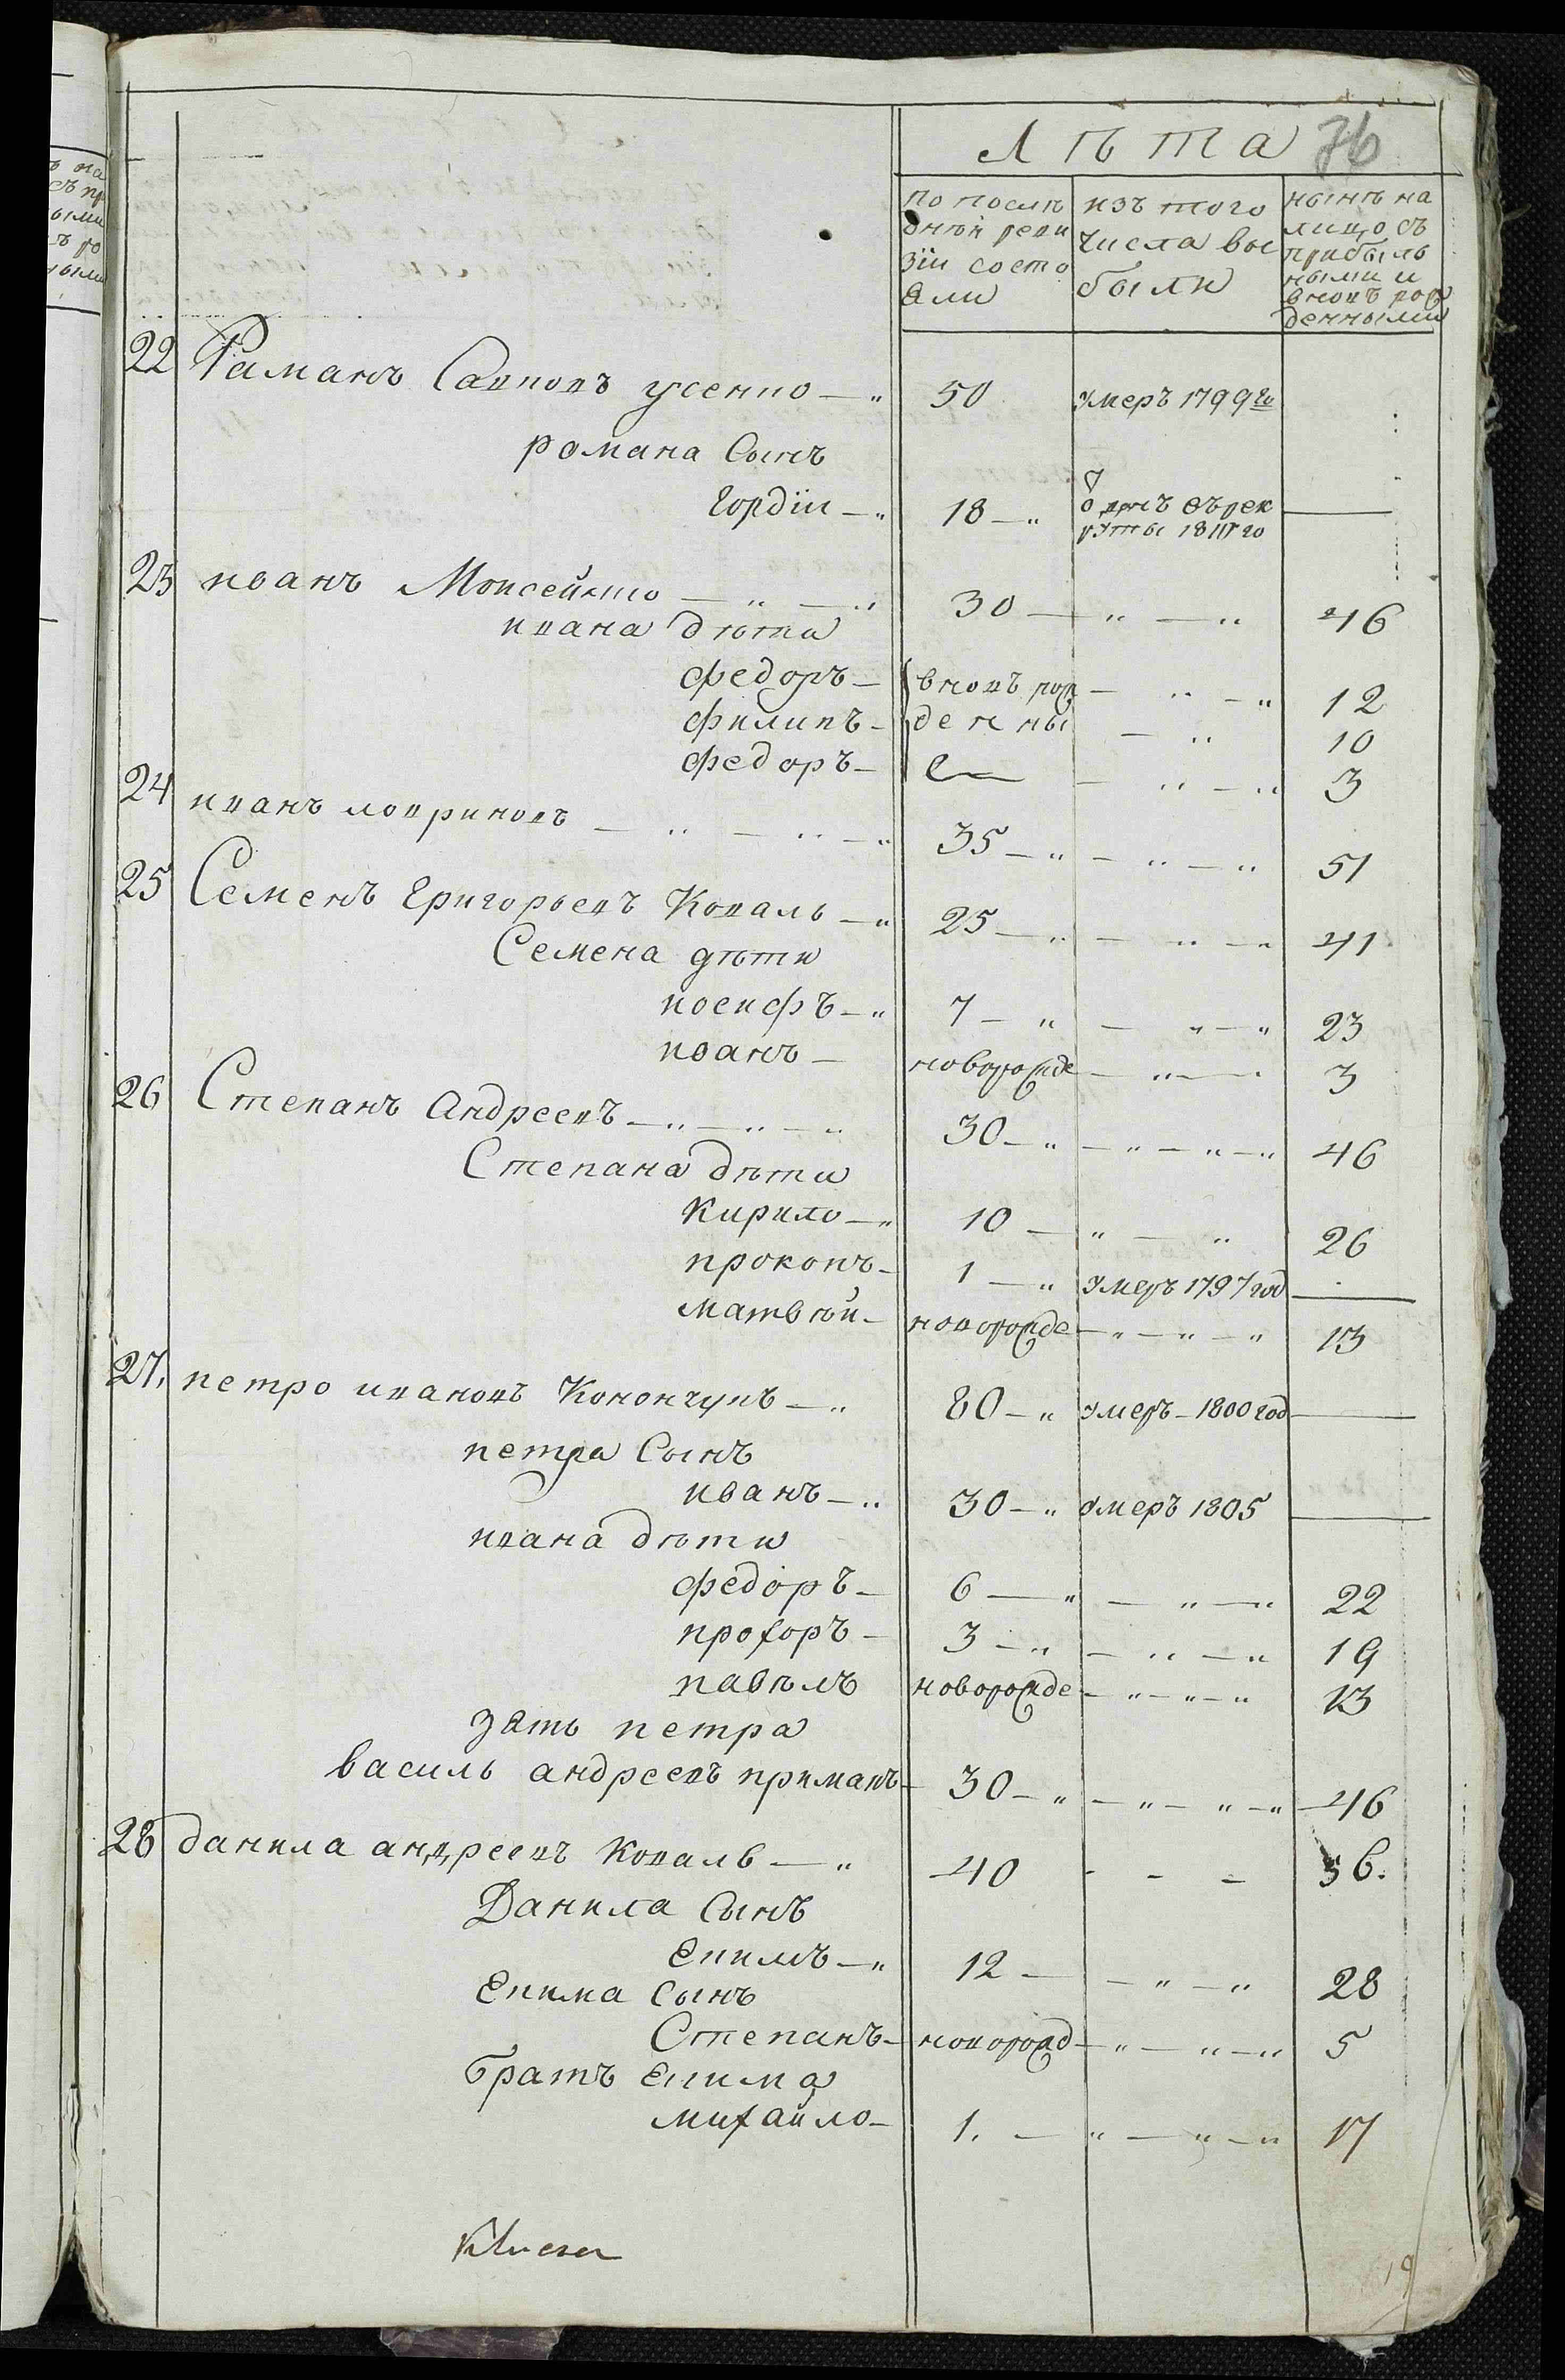 Лѣта 76
по послѣ
дней реви
зіи состо
яли
изъ того
числа вы
были
нынѣ на
лицо съ
прибыль
ными и
вновь рож
денными
22 Раманъ Савповъ усенко — " 50 умеръ 1799го
романа Сынъ
Гордіи — " 18 — "
рутты 18 го
23 иванъ Моисейнко — " — " 30 — " — " 46
ивана дѣти
федоръ — вновь рож — " — " 12
филипъ — денны — " 10
федоръ — — " — " 3
24 иванъ ловриновъ — " — " — " 35 — " — " — " 51
25 Семенъ Григорьевъ Коваль — " 25 — " — " — " 41
Семена дѣти
иосифъ — " 7 — " — " — " 23
иванъ — новорожде — " — " 3
26 Степанъ Андреевъ — " — " — " 30 — " — " — " — " 46
Степана дѣти
Кирило — " 10 — " — " 26
прокопъ — 1 — " умеръ 1797 год —
матвѣй — новорожде — " — " — " 13
27. петро ивановъ Конончукъ — " 80 — " умеръ — 1800 год —
петра Сынъ
иванъ — " 30 — " умеръ 1805 —
ивана дѣти
федоръ — 6 — " — " — " 22
прохоръ — 3 — " — " — " 19
павълъ новорожде — " — " — " 13
зять петра
василь андреевъ примакъ — 30 — " — " — " — " 46
28 данила андреевъ коваль — " 40 - - - 56.
Данила Сынъ
Екимъ — " 12 — — " — " 28
Екима Сынъ
Степанъ — новорожд — " — " — " 5
братъ Екима
михайло — 1. — " — " — " 17
19